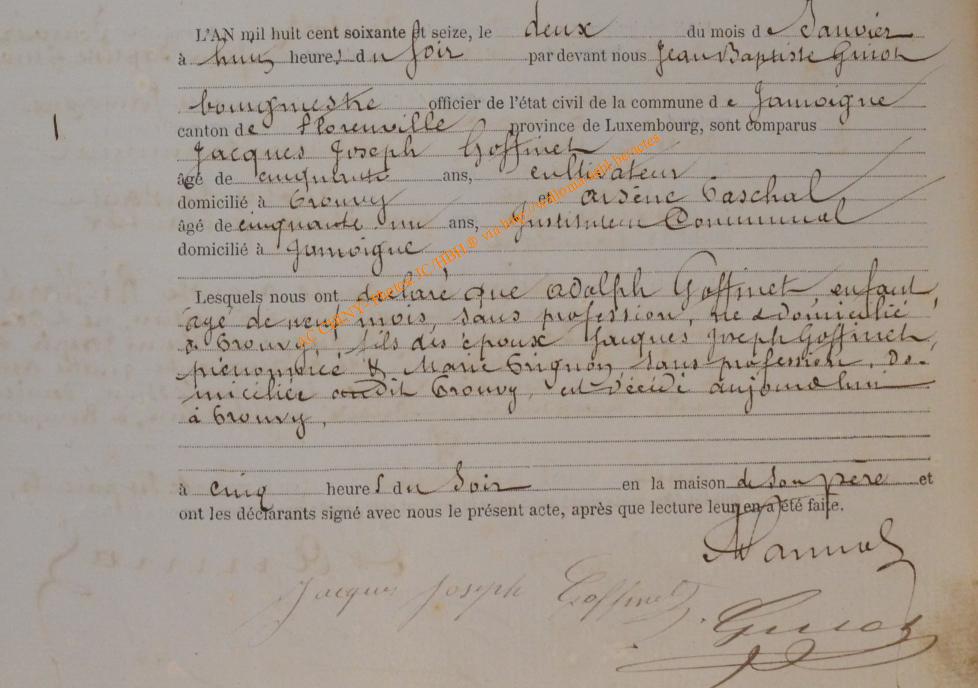 L'AN mil huit cent soixante et seize, le deux du mois de Janvier
à huit heures du soir par devant nous Jean Baptiste Guiot
bourgmestre officier de l'état civil de la commune de Jamoigne
1
canton de Florenville province de Luxembourg, sont comparus
Jacques Joseph Goffinet
âgé de cinquante ans, cultivateur
domicilié à Prouvy et Arsène Paschal
âgé de cinquante un ans, Instituteur Communal
domicilié à Jamoigne
Lesquels nous ont déclaré que Adolph Goffinet, enfant,
âgé de neuf mois, sans profession, né & domicilié
à Prouvy, fils des époux Jacques Joseph Goffinet,
prénommé & Marie Grignon sans profession, do-
miciliée audit Prouvy, est décédé aujourd'hui
à Prouvy,
à cinq heures du soir en la maison de son père et
ont les déclarants signé avec nous le présent acte, après que lecture leur en a été faite.
Jacques Joseph Goffinet J. Guiot
AC CHINY - Photos JC HBH © via http://wallonia-asbl.be/actes